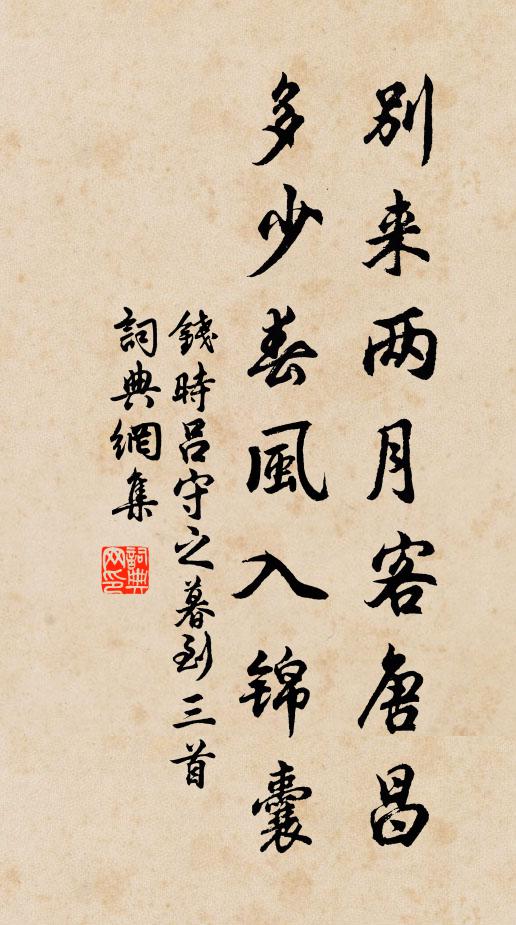 别来两月客唐昌
多少春風入錦囊
錢時吕守之暮到三首
詞典網集
詞典网印